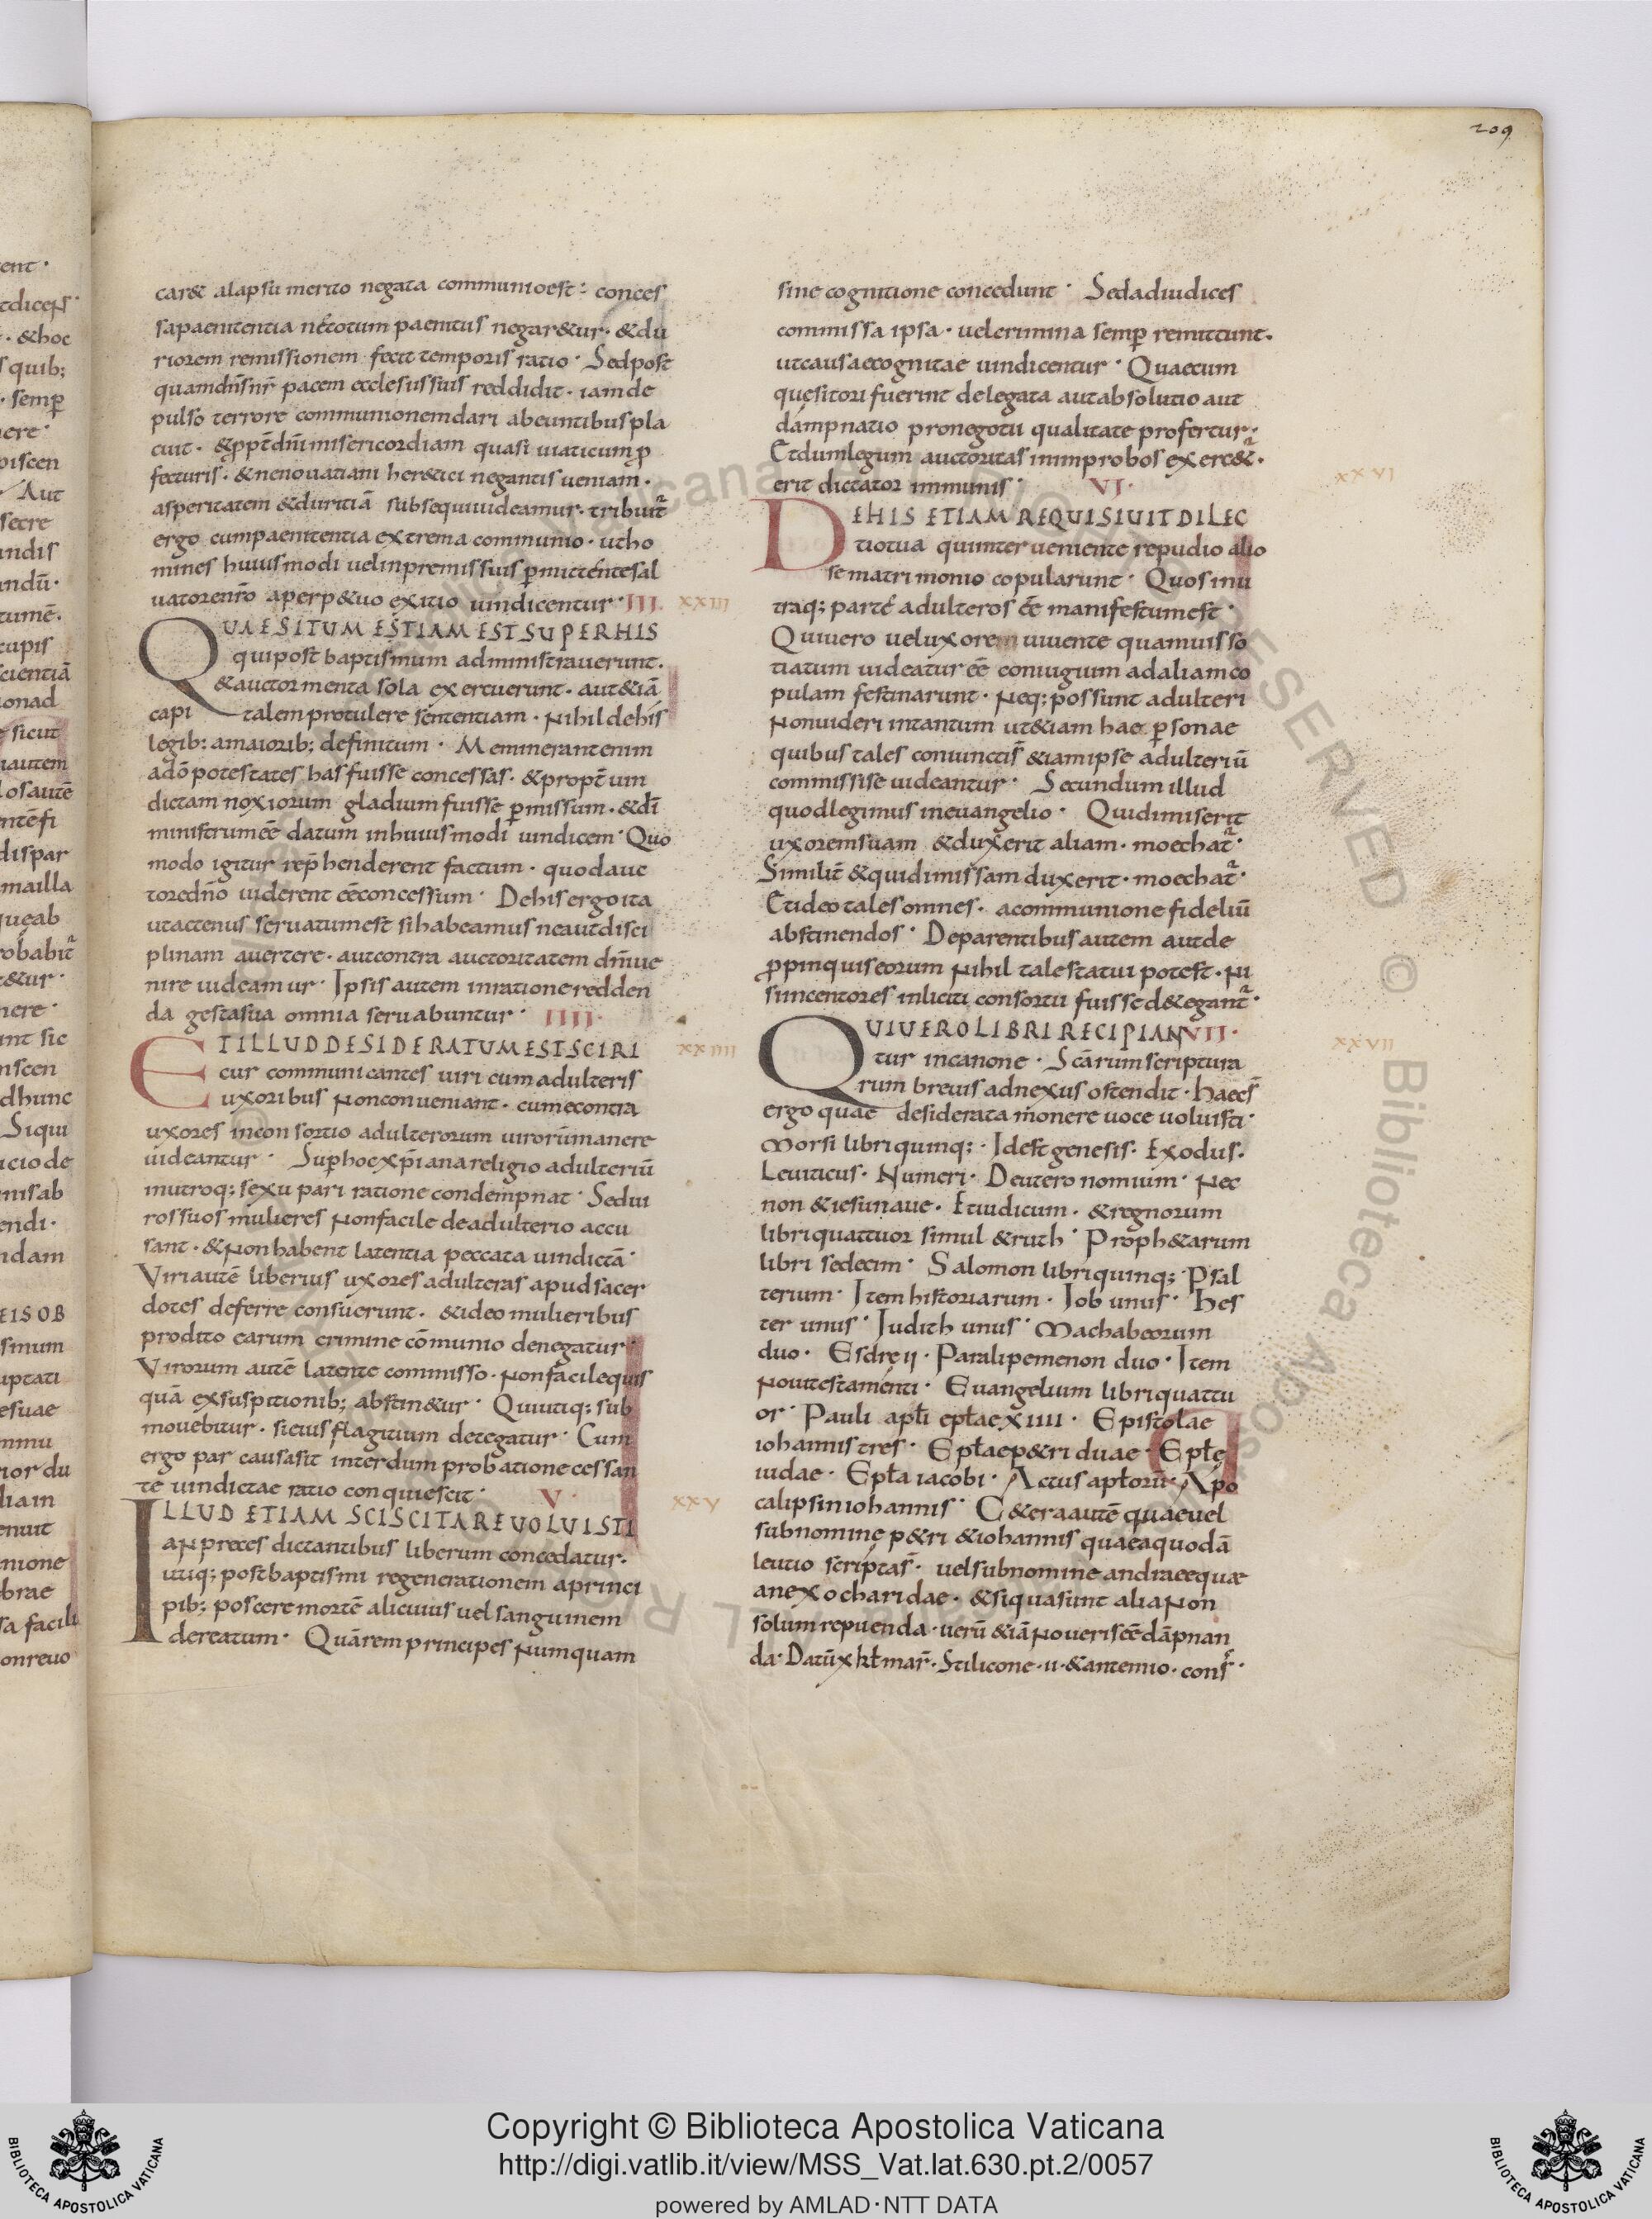 209
ent·
tdiceɲſ·
·&hoc
s quib;
· semp̄
ere·
piscen
Aut
secre
indis
ndū·
tumē·
cupis
cientiā
onad
e sicut
iautem
losautē
ntēfi
dispar
mailla
ueab
robabit̄
&ur·
nere·
nt sic
nscen
dhunc
Siqui
iciode
nisab
endi·
ndam
EISOB
simum
uptati
esuae
mmu
ior du
liain
enuit
nione
brae
sa facili
onreuo
car& alapsu merito negata communioest: conces
sapaenitentia nētotum paenitus negar&ur· &du
riorem remissionem fecit temporis ratio· Sedpost
quamdn̄snr̄ pacem ecclesiissuis reddidit· iamde
pulso terrore communionemdari abeuntibuspla
cuit· &ppt̄dn̄imisericordiam quasi uiaticumꝑ
fecturis· &nenouatiani her&ici negantis ueniam·
asperitatem &duritiā subsequiuideamur· tribuit̄
ergo cumpaenitentia extrema communio· utho
mines huiusmodi uelinpremissuis ꝑmittentesal
uatorenr̄o aperp&uo exitio uindicentur· III. XXIII
QUAESITUM ESTIAM EST SUPERHIS
quipost baptismum administrauerunt·
&auctormenta sola exercuerunt· aut&iā
capi talemprotulere sententiam· Nihildehis
legib: amaiorib; definitum· Meminerantenim
adō potestates hasfuisse concessas· &propt̄ uin
dictam noxiorum gladium fuisse ꝑmissum· &dī
ministrumēē datum inhuiusmodi uindicem· Quo
modo igitur rep̄henderent factum· quodauc
toredn̄o uiderent ēēconcessum· Dehisergoita
utactenus seruatumest sihabeamus neautdisci
plinam auertere· autcontra auctoritatem dn̄iue
nire uideamur· Ipsis autem inrationeredden
da gestasua omnia seruabuntur· IIII·
ETILLUDDESIDERATUMESTSCIRI XXIIII
cur communicantes uiri cumadulteris
uxoribus Nonconueniant· cumecontra
uxores inconsortio adulterorum uirorūmanere
uideantur· Suꝑhocxp̄ianareligio adulteriū
inutroq; sexu pari ratione condempnat· Sedui
rossuos mulieres Nonfacile deadulterio accu
sant· &Nonhabent latentia peccata uindictā·
Viriautē liberius uxores adulteras apudsacer
dotes deferre consuerunt· &ideo mulieribus
prodito earum crimine cōmunio denegatur·
Virorum autē latente commisso· Nonfacilequis
quā exsuspitionib; abstin&ur· Quiutiq; sub
mouebitur· sieiusflagitium detegatur· Cum
ergo par causasit interdum probatione cessan
te uindictae ratio conquiescit· V· XXV
ILLUD ETIAM SCISCITAREUOLUISTI
aNpreces dictantibus liberum concedatur·
utiq; postbaptismi regenerationem aprinci
pib; poscere mortē alicuius uel sanguinem
dereatum· Quārem principes Numquam
sine cognitione concedunt· Sedadiudices
commissa ipsa· uelcrimina semp̄ remittunt·
utcausaecognitae uindicentur· Quaecum
quesitori fuerint delegata autabsolutio aut
dampnatio pronegotii qualitate profertur·
Etdumlegum auctoritas inimprobos exerc&̄·
erit dictator immunis· VI· XXVI
DEHIS ETIAM REQUISIUITDILEC
tiotua quiinterueniente repudio alio
sematrimonio copularunt· Quosinu
traq; partē adulteros ēē manifestumest·
Quiuero ueluxorem uiuente quamuisso
tiatum uideatur ēē coniugium adaliamco
pulam festinarunt· Neq; possunt adulteri
Nonuideri intantum ut&iam hae ꝑsonae
quibus tales coniunctis̄ &iamipse adulteriū
commississe uideantur· Secundum illud
quodlegimus ineuangelio· Quidimiserit
uxoremsuam &duxerit aliam· moechat̄·
Similit̄ &quidimissam duxerit· moechat̄·
Etideo tales omnes· acommunione fideliū
abstinendos· Deparentibus autem autde
ꝓpinquiseorum Nihil talestatui potest· Ni
siincentores inliciti consortii fuissed&egant̄·
QUIUEROLIBRI RECIPIANVII· XXVII
tur incanone· Scārumscriptura
rum breuis adnexus ostendit· Haecs̄
ergo quae desiderata monere uoce uoluisti·
Morsi libri quinq;· Idest genesis· Exodus·
Leuiticus· Numeri· Deuteronomium· Nec
non &iesunaue· Etiudicum· &regnorum
libri quattuor simul &ruth· Proph&arum
libri sedecim· Salomon libri quinq; Psal
terium· Item historiarum· Iob unus· Hes
ter unus· Iudith unus· Machabeorum
duo· Esdrę ii· Paralipemenon duo· Item
Nouitestamenti· Euangelium libri quattu
or· Pauli apłi epłae xiiii· Epistolae
iohannis tres· Epłaep&ri duae· Epłę
iudae· Epła iacobi· Actus apłorū· Apo
calipsiniohannis· C&eraautē quaeuel
subnomine p&ri &iohannis quaeaquodā
leucio scriptas̄· uelsubnomine andraeequæ
anexocharidae· &siquasunt aliaNon
solum repuenda· uerū &iā Noueriscē dāpnan
da· Datūx kł mar̄· Stilicone· ii· &antemio· cons̄·
Copyright © Biblioteca Apostolica Vaticana
http://digi.vatlib.it/view/MSS_Vat.lat.630.pt.2/0057
powered by AMLAD·NTT DATA
BIBLIOTECA APOSTOLICA VATICANA
BIBLIOTECA APOSTOLICA VATICANA